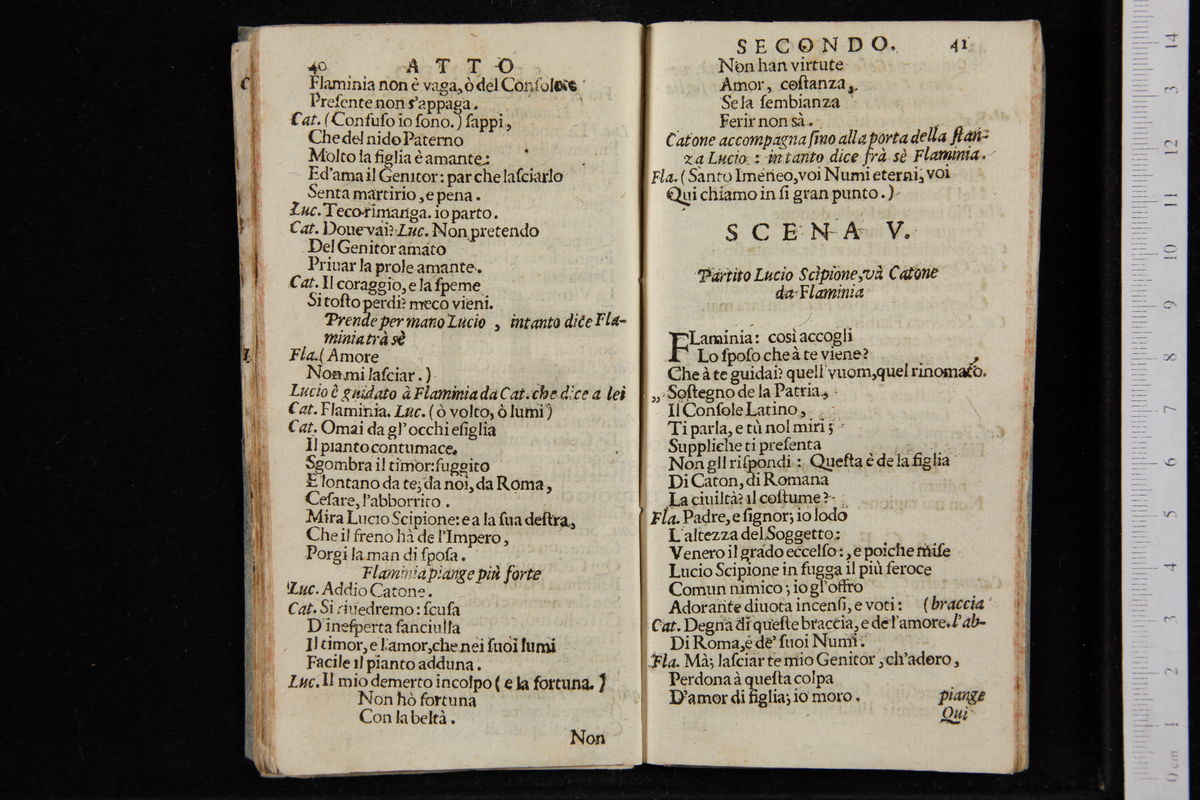 40 ATTO
Flaminia non è vaga, ò del Consolere
Presente non s'appaga.
Cat. (Confuso io sono.) sappi,
Che del nido Paterno
Molto la figlia è amante:
Ed'ama il Genitor: par che lasciarlo
Senta martirio, e pena.
Luc. Teco rimanga. io parto.
Cat. Doue vai? Luc. Non pretendo
Del Genitor amato
Priuar la prole amante.
Cat. Il coraggio, e la speme
Si tosto perdi? meco vieni.
Prende per mano Lucio, intanto dice Fla-
minia trà sè
Fla. (Amore
Non mi lasciar.)
Lucio è guidato à Flaminia da Cat. che dice a lei
Cat. Flaminia. Luc. (ò volto, ò lumi)
Cat. Omai da gl'occhi esiglia
Il pianto contumace.
Sgombra il timor: fuggito
E' lontano da te; da noi, da Roma,
Cesare, l'abborrito.
Mira Lucio Scipione: e a la sua destra,
Che il freno hà de l'Impero,
Porgi la man di sposa.
Flaminia piange più forte
Luc. Addio Catone.
Cat. Si riuedremo: scusa
D'inesperta fanciulla
Il timor, e l'amor, che nei suoi lumi
Facile il pianto adduna.
Luc. Il mio demerto incolpo (e la fortuna.)
Non hò fortuna
Con la beltà.
Non
SECONDO. 41
Non han virtute
Amor, costanza,
Se la sembianza
Ferir non sà.
Catone accompagna sino alla porta della stan-
za Lucio: intanto dice frà sè Flaminia.
Fla. (Santo Imeneo, voi Numi eterni, voi
Qui chiamo in si gran punto.)
SCENA V.
Partito Lucio Scipione, và Catone
da Flaminia
FLaminia: così accogli
Lo sposo che à te viene?
Che à te guidai? quell'vuom, quel rinomato.
„ Sostegno de la Patria,
Il Console Latino,
Ti parla, e tù nol miri;
Suppliche ti presenta
Non gli rispondi: Questa è de la figlia
Di Caton, di Romana
La ciuiltà? il costume?
Fla. Padre, e signor; io lodo
L'altezza del Soggetto:
Venero il grado eccelso:, e poiche mise
Lucio Scipione in fugga il più feroce
Comun nimico; io gl'offro
Adorante diuota incensi, e voti: (braccia
Cat. Degna di queste braccia, e de l'amore. l'ab-
Di Roma, e de' suoi Numi.
Fla. Mà; lasciar te mio Genitor, ch'adoro,
Perdona à questa colpa
D'amor di figlia; io moro. piange
Qui
14
13
12
11
10
9
8
7
6
5
4
3
2
1
0 cm